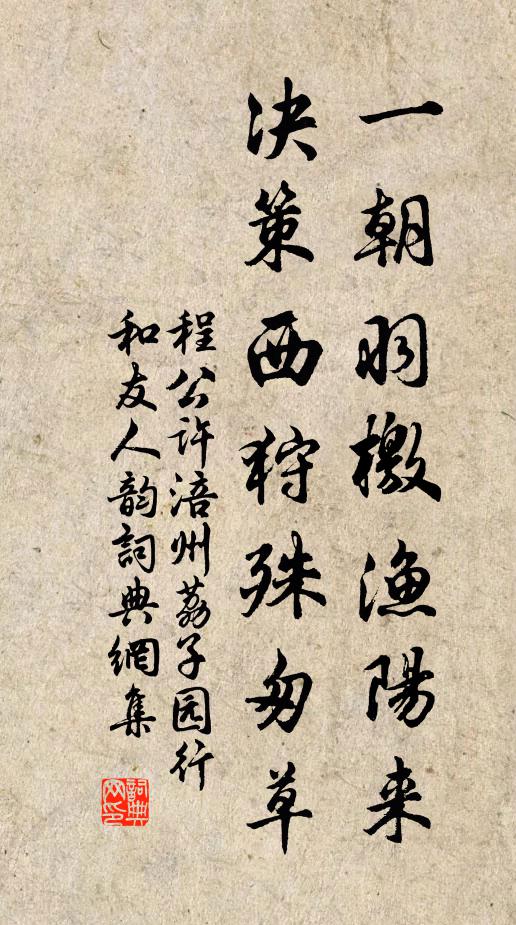 一朝羽檄渔陽来
决策西狩殊匆草
程公许涪州荔子园行
和友人韵詞典網集
詞典网印